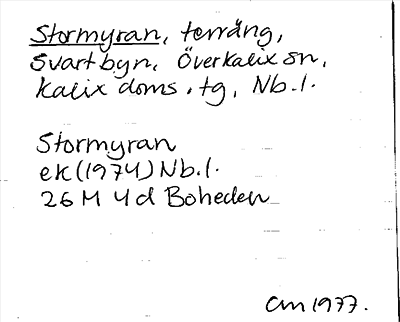 Stormyran, terräng,
Svartbyn, Överkalix sn,
Kalix doms.tg, Nb.l.
Stormyran
ek(1974)Nb.l.
26 M 4d Boheden
CM 1977.